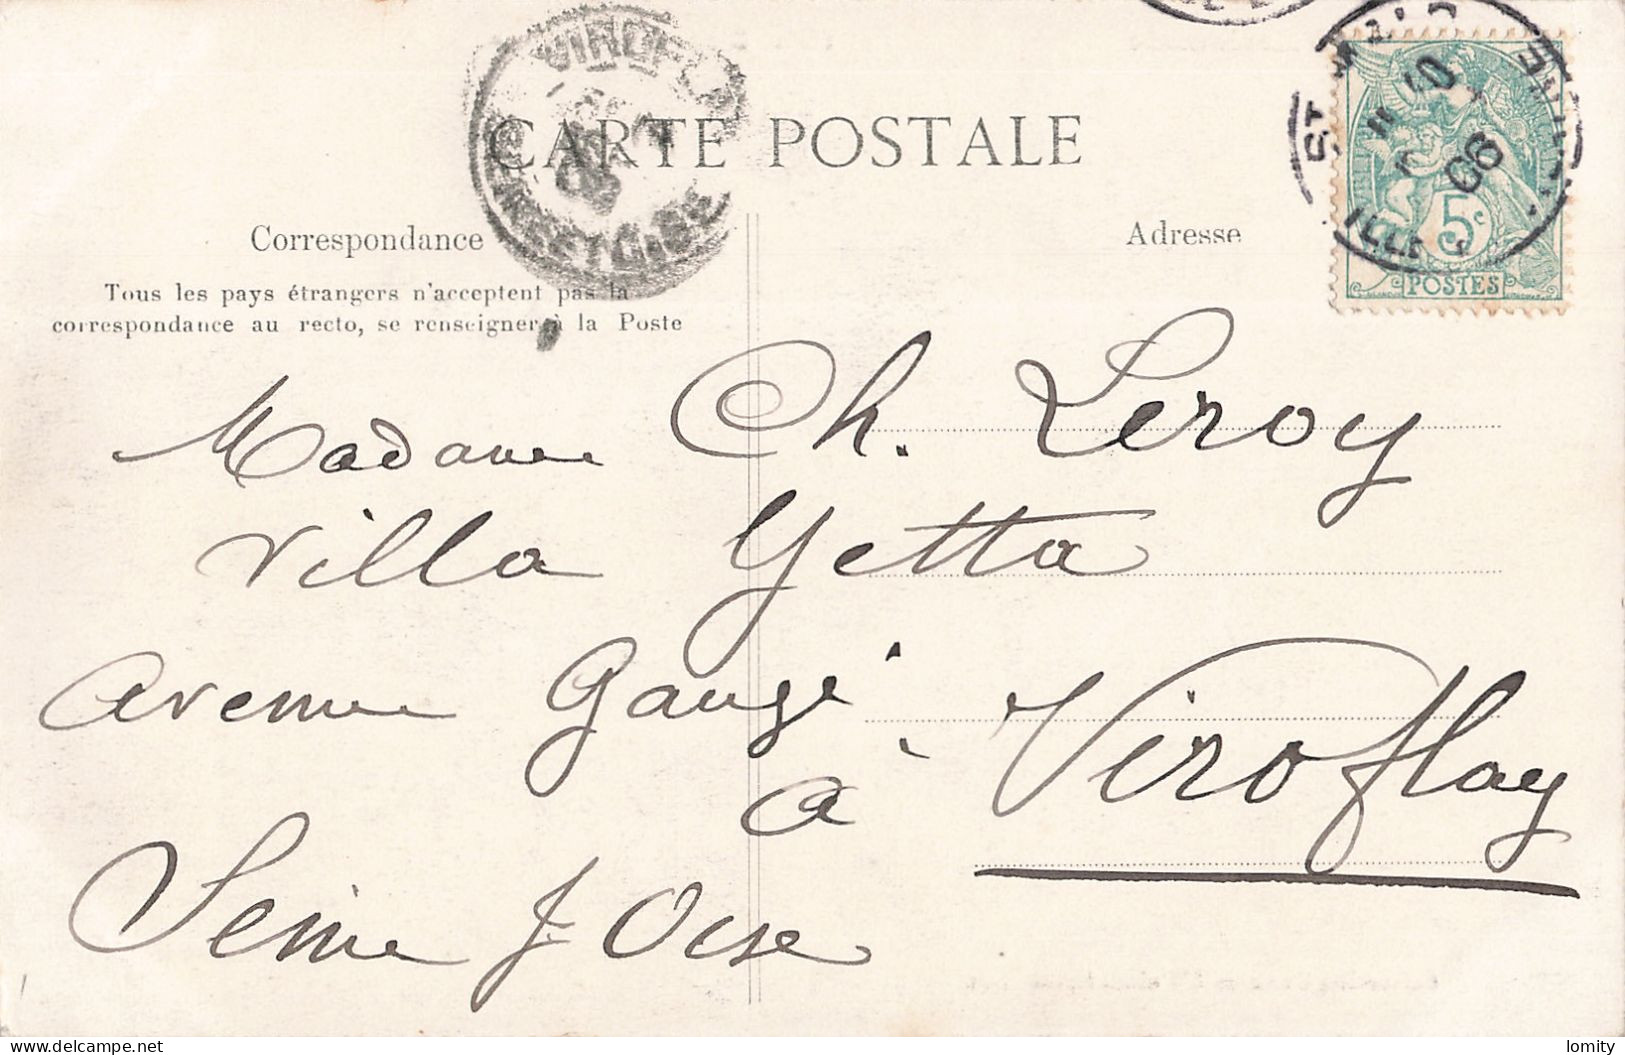 CARTE POSTALE
Correspondance
Adresse
Tous les pays étrangers n'acceptent pas la
correspondance au recto, se renseigner à la Poste
VIROFLAY
SEINE-ET-OISE
ST MALO
10
06
5c
POSTES
Madame Ch. Leroy
Villa Yetta
Avenue Gaugé
à Viroflay
Seine & Oise
www.delcampe.net
lomity